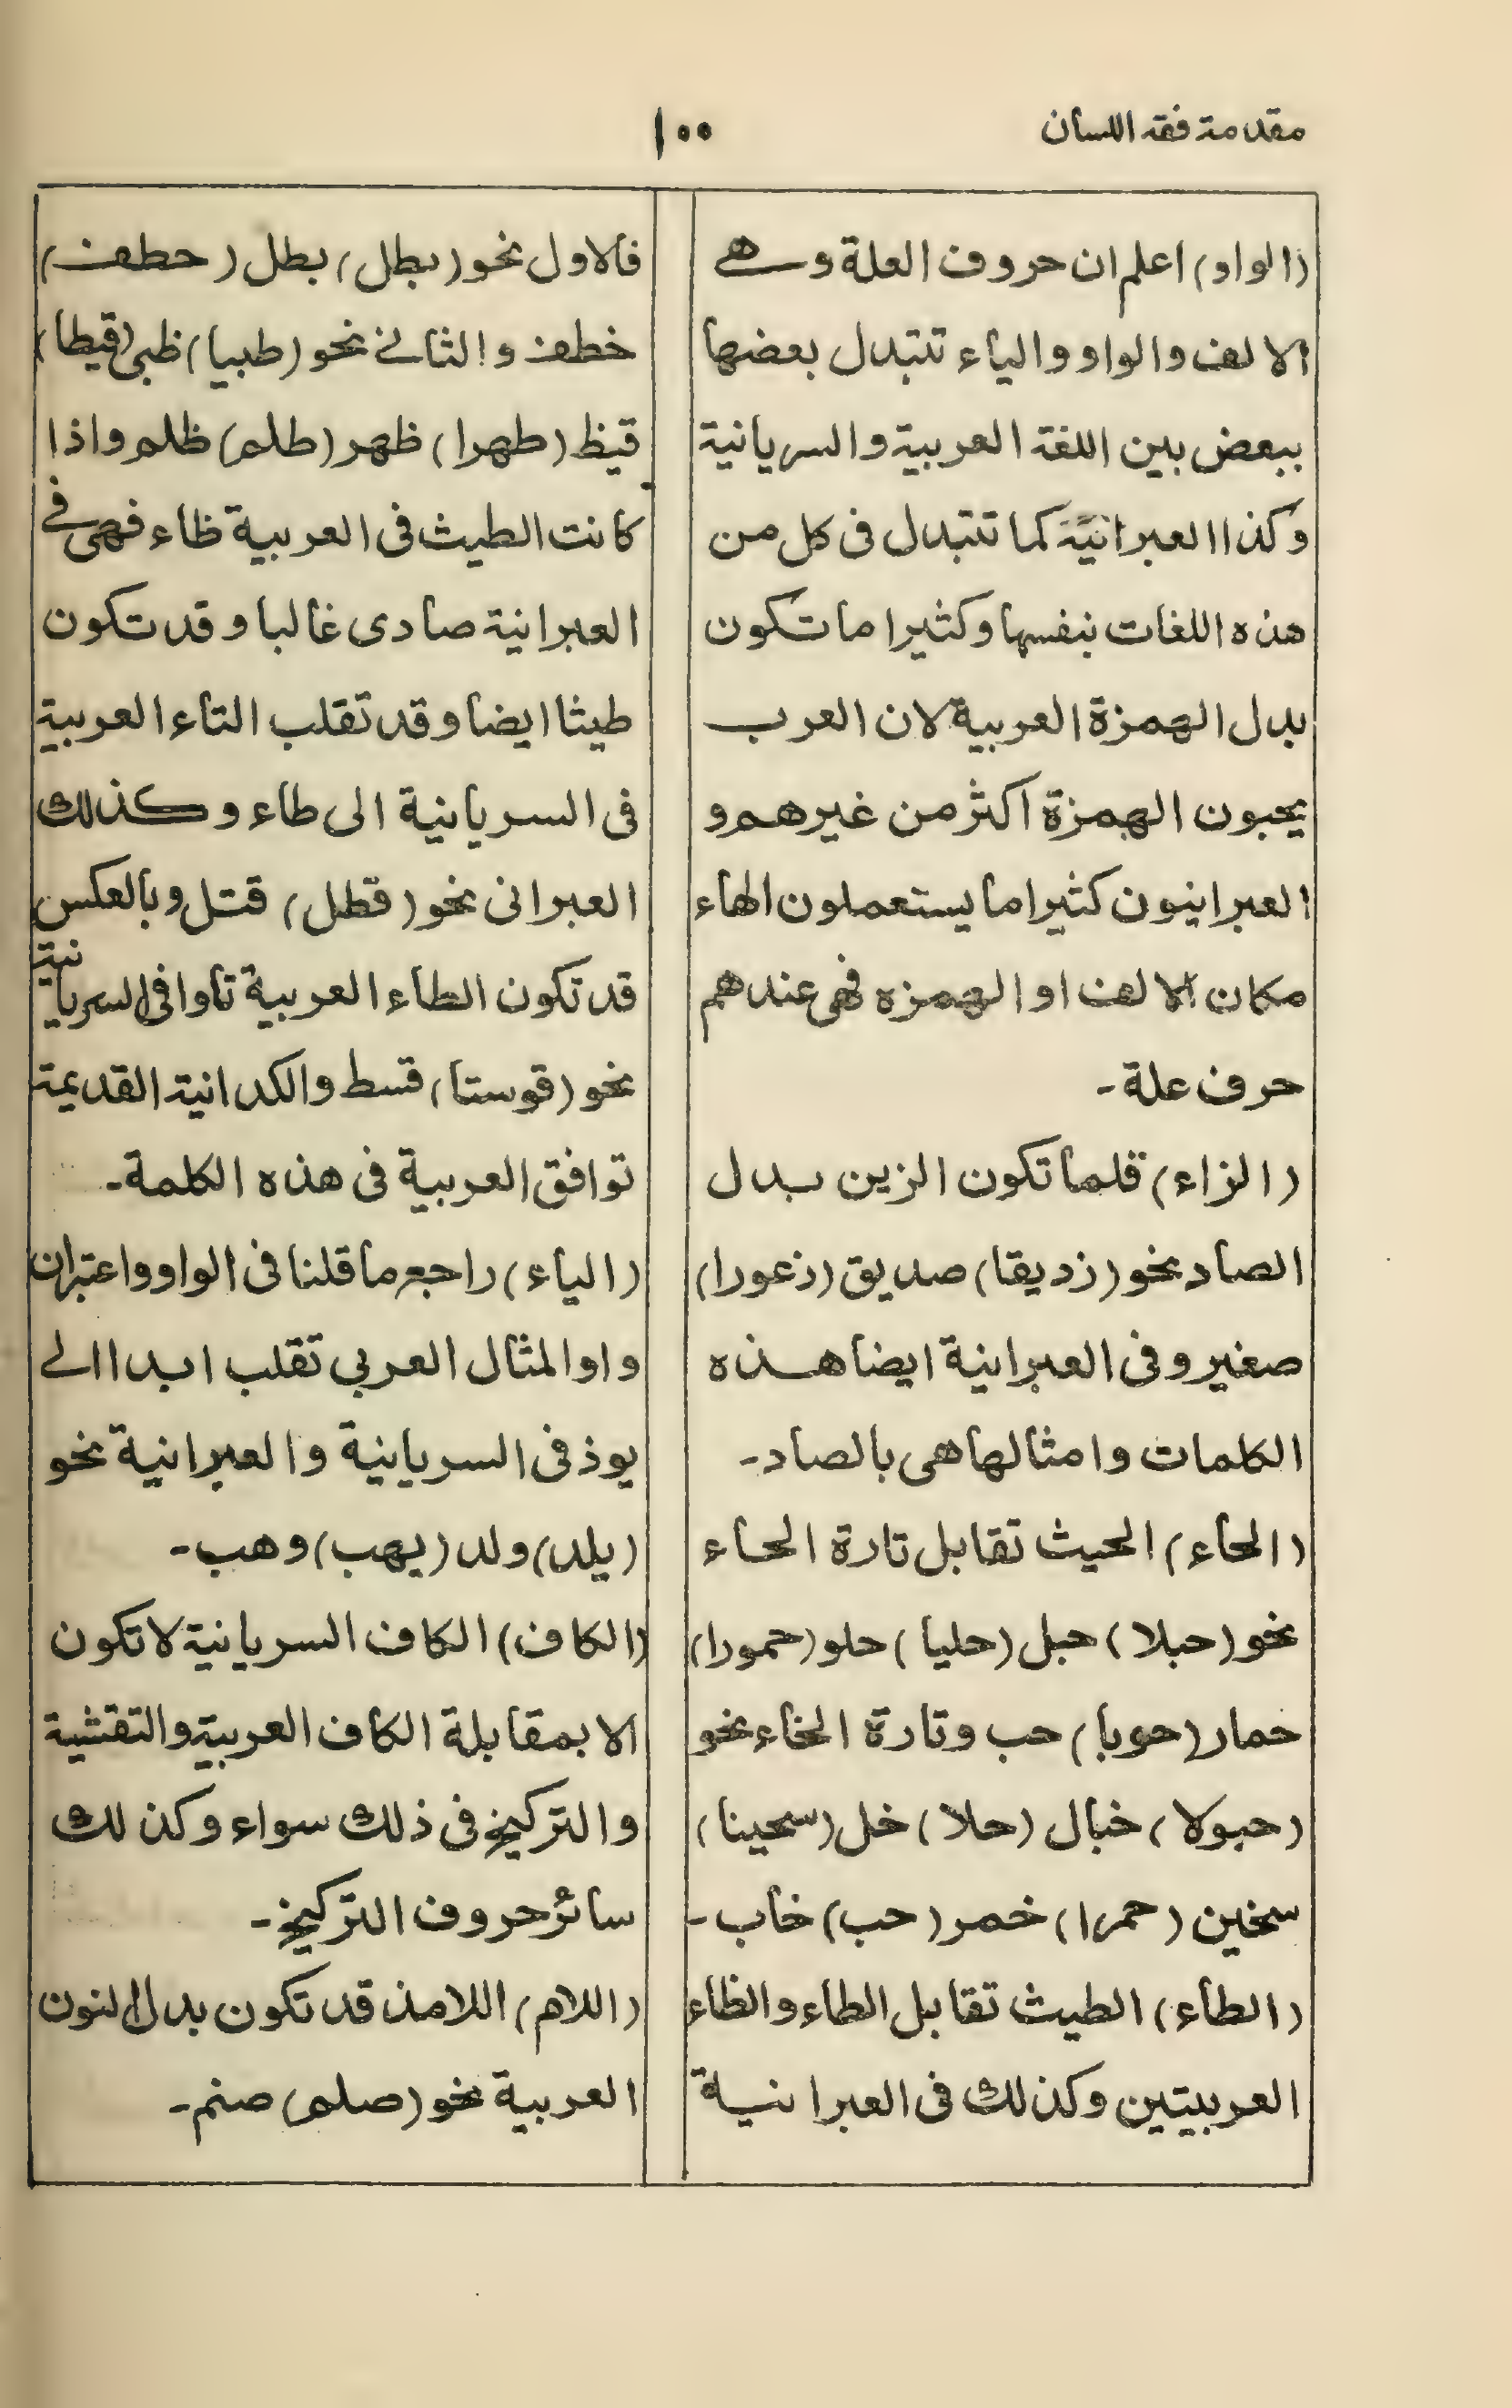 مقدمة فقه اللسان
١٠٠
(الواو) اعلم ان حروف العلة وهے
الالف والواو والياء تتبدل بعضها
ببعض بين اللغة العربية والسريانية
وكذا العبرانية كما تتبدل فى كل من
هذه اللغات بنفسها وكثيرا ما تكون
بدل الهمزة العربية لان العرب
يحبون الهمزة اكثر من غيرهم و
العبرانيون كثيرا ما يستعملون الهاء
مكان الالف او الهمزه فهى عندهم
حرف علة -
(الزاء) قلما تكون الزين بدل
الصاد نحو (زديقا) صديق (زعورا)
صغير وفى العبرانية ايضا هذه
الكلمات وامثالها هى بالصاد -
(الحاء) الحيث تقابل تارة الحاء
نحو (حبلا) حبل (حليا) حلو (حمورا)
حمار (حوبا) حب وتارة الخاء نحو
(حبولا) خبال (حلا) خل (سحينا)
سخين (حمرا) خمر (حب) خاب -
(الطاء) الطيث تقابل الطاء والظاء
العربيتين وكذلك فى العبرانية
فالاول نحو (بطل) بطل (حطف)
خطف والثانے نحو (طبيا) ظبى (قيطا)
قيظ (طهرا) ظهر (طلم) ظلم واذا
كانت الطيث فى العربية ظاء فهى فے
العبرانية صادى غالبا وقد تكون
طيثا ايضا وقد تقلب التاء العربية
فى السريانية الى طاء وكذلك
العبرانى نحو (قطل) قتل وبالعكس
قد تكون الطاء العربية تاوا فى السريانية
نحو (قوستا) قسط والكدانية القديمة
توافق العربية فى هذه الكلمة -
(الياء) راجع ما قلنا فى الواو واعتبر ان
واو المثال العربي تقلب ابدا الے
يوذ فى السريانية والعبرانية نحو
(يلد) ولد (يهب) وهب -
(الكاف) الكاف السريانية لا تكون
الا بمقابلة الكاف العربية والتقشية
والتركيخ فى ذلك سواء وكذلك
سائر حروف التركيخ -
(اللام) اللامذ قد تكون بدل النون
العربية نحو (صلم) صنم -